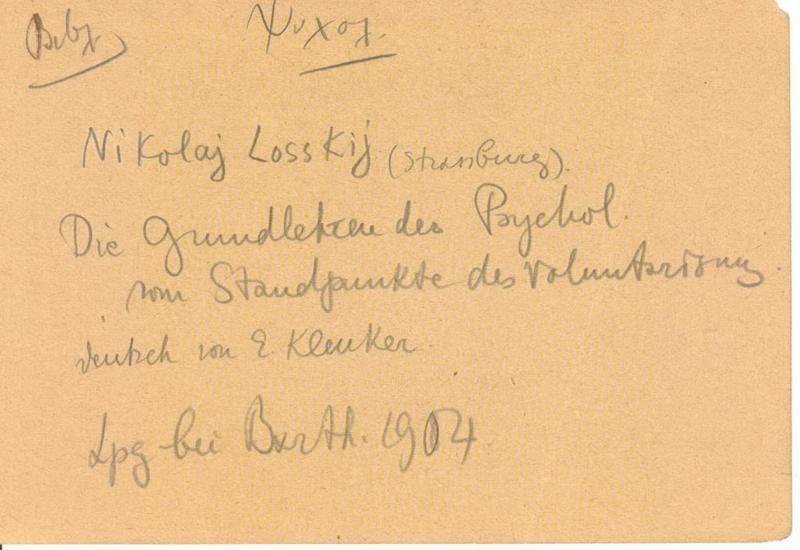 Ψυχολ.
Nikolaj Losskij (Strassburg).
Die Grundlehren der Psychol.
vom Standpunkte des Voluntarismus.
deutsch von E. Kleuker
Lpg bei Barth. 1904